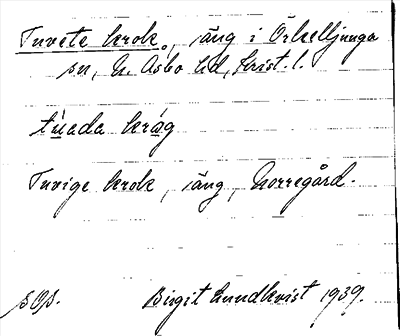 Tuvete krok, äng i Örkelljunga
sn, N. Åsbo hd, Krist. l.
túada kråg
Tuvige krok, äng, Norregård.
s. 98.
Birgit Lundkvist 1939.